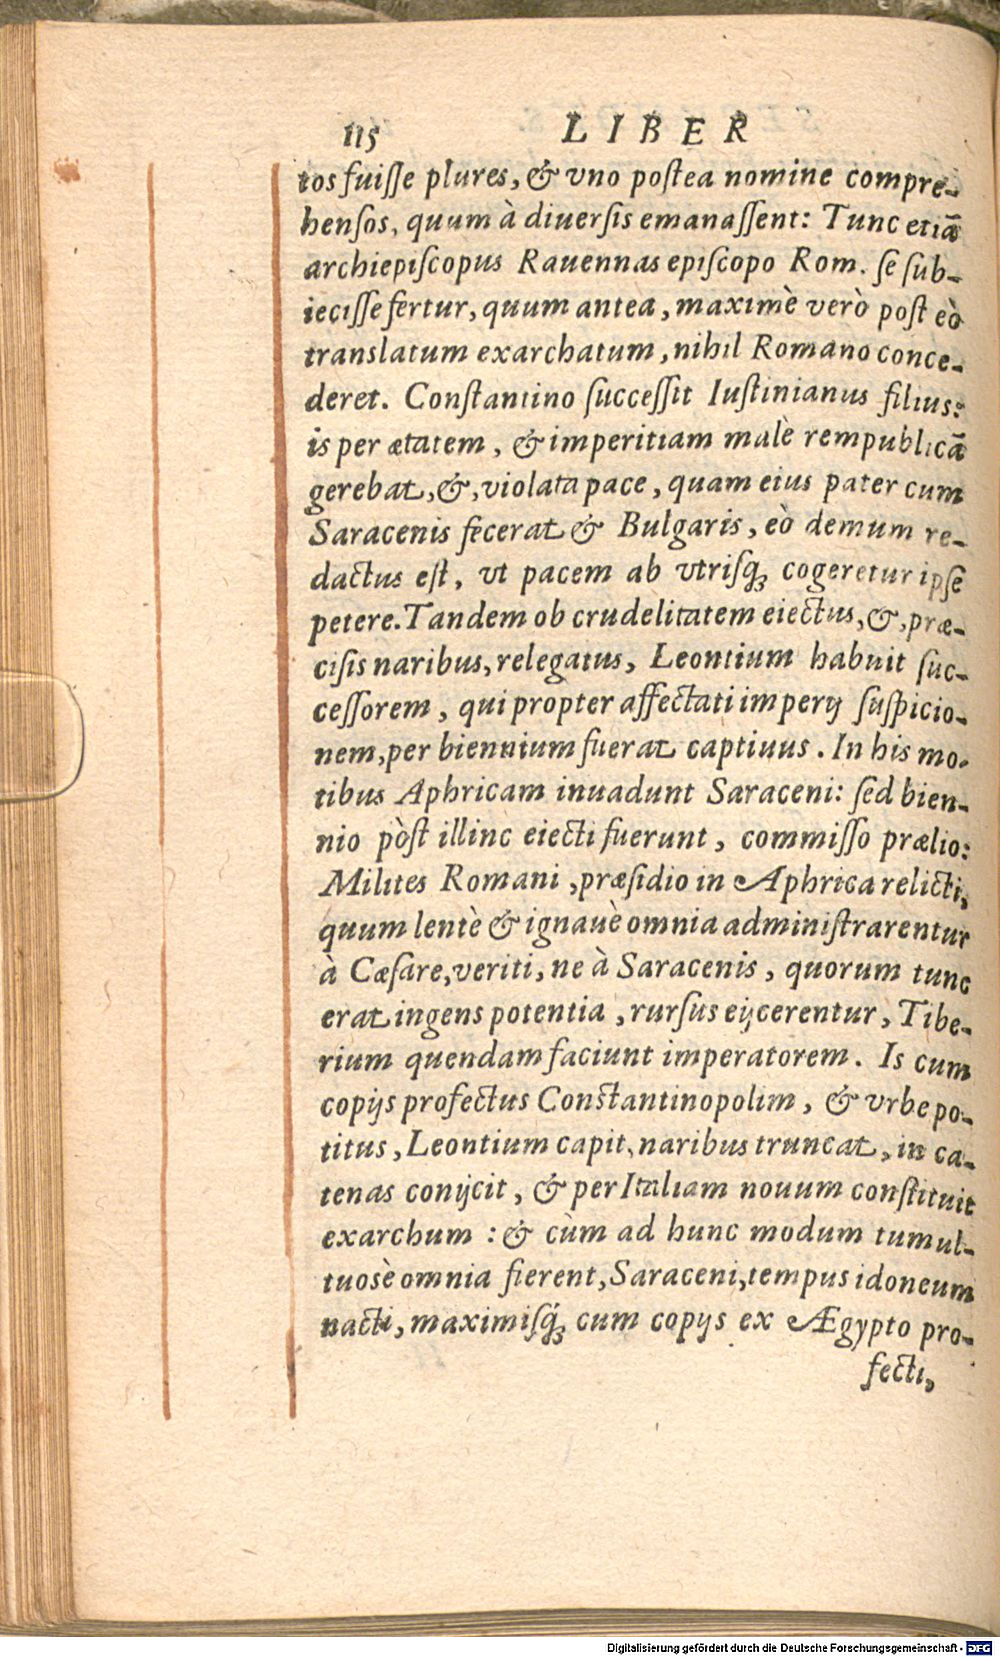 115 LIBER
tos fuiſſe plures, & vno poſtea nomine compre-
henſos, quum à diuerſis emanaſſent: Tunc etiã
archiepiſcopus Rauennas epiſcopo Rom. ſe ſub-
ieciſſe fertur, quum antea, maximè verò poſt eò
translatum exarchatum, nihil Romano conce-
deret. Conſtantino ſucceſſit Iuſtinianus filius:
is per ætatem, & imperitiam malè rempublicã
gerebat, &, violata pace, quam eius pater cum
Saracenis fecerat & Bulgaris, eò demum re-
dactus eſt, vt pacem ab vtriſq; cogeretur ipſe
petere. Tandem ob crudelitatem eiectus, &, præ-
ciſis naribus, relegatus, Leontium habuit ſuc-
ceſſorem, qui propter affectati imperij ſuſpicio-
nem, per biennium fuerat captiuus. In his mo-
tibus Aphricam inuadunt Saraceni: ſed bien-
nio pòſt illinc eiecti fuerunt, commiſſo prælio:
Milites Romani, præſidio in Aphrica relicti,
quum lentè & ignauè omnia adminiſtrarentur
à Cæſare, veriti, ne à Saracenis, quorum tunc
erat ingens potentia, rurſus eijcerentur, Tibe-
rium quendam faciunt imperatorem. Is cum
copijs profectus Conſtantinopolim, & vrbe po-
titus, Leontium capit, naribus truncat, in ca-
tenas conijcit, & per Italiam nouum conſtituit
exarchum: & cùm ad hunc modum tumul-
tuosè omnia fierent, Saraceni, tempus idoneum
nacti, maximiſq́; cum copijs ex Ægypto pro-
fecti,
Digitalisierung gefördert durch die Deutsche Forschungsgemeinschaft - DFG